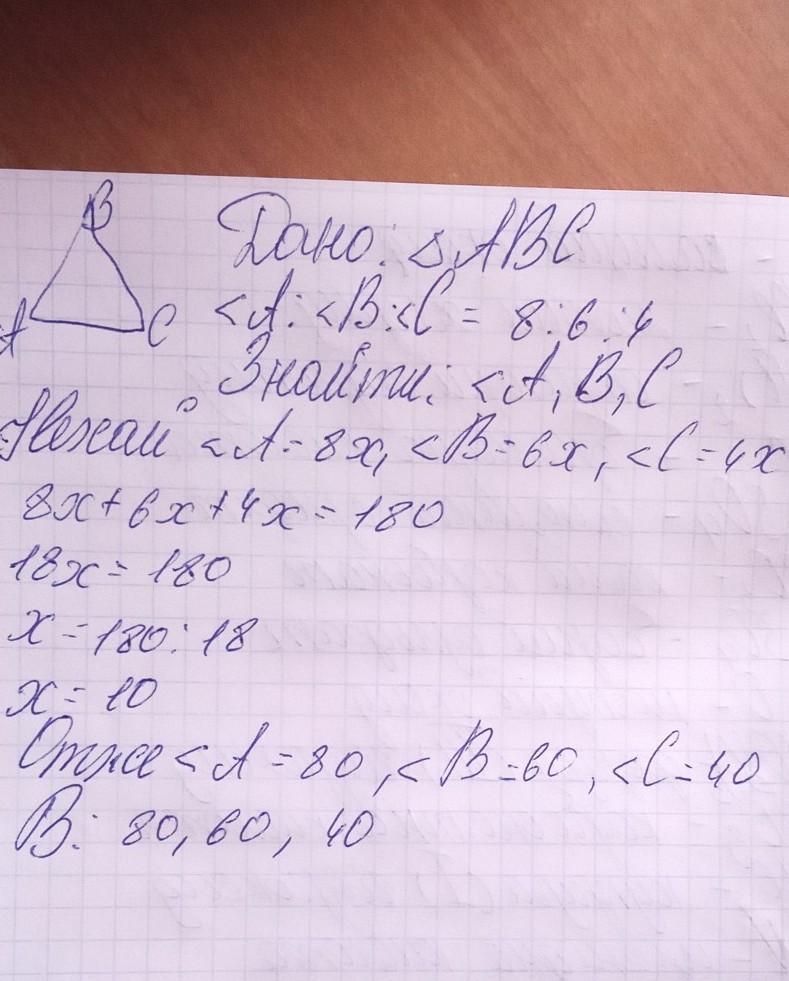 B
A
C
Дано: △ABC
<A:<B:<C = 8:6:4
Знайти: <A, B, C
Нехай <A=8x, <B=6x, <C=4x
8x+6x+4x=180
18x=180
x=180:18
x=10
Отже <A=80, <B=60, <C=40
В: 80, 60, 40